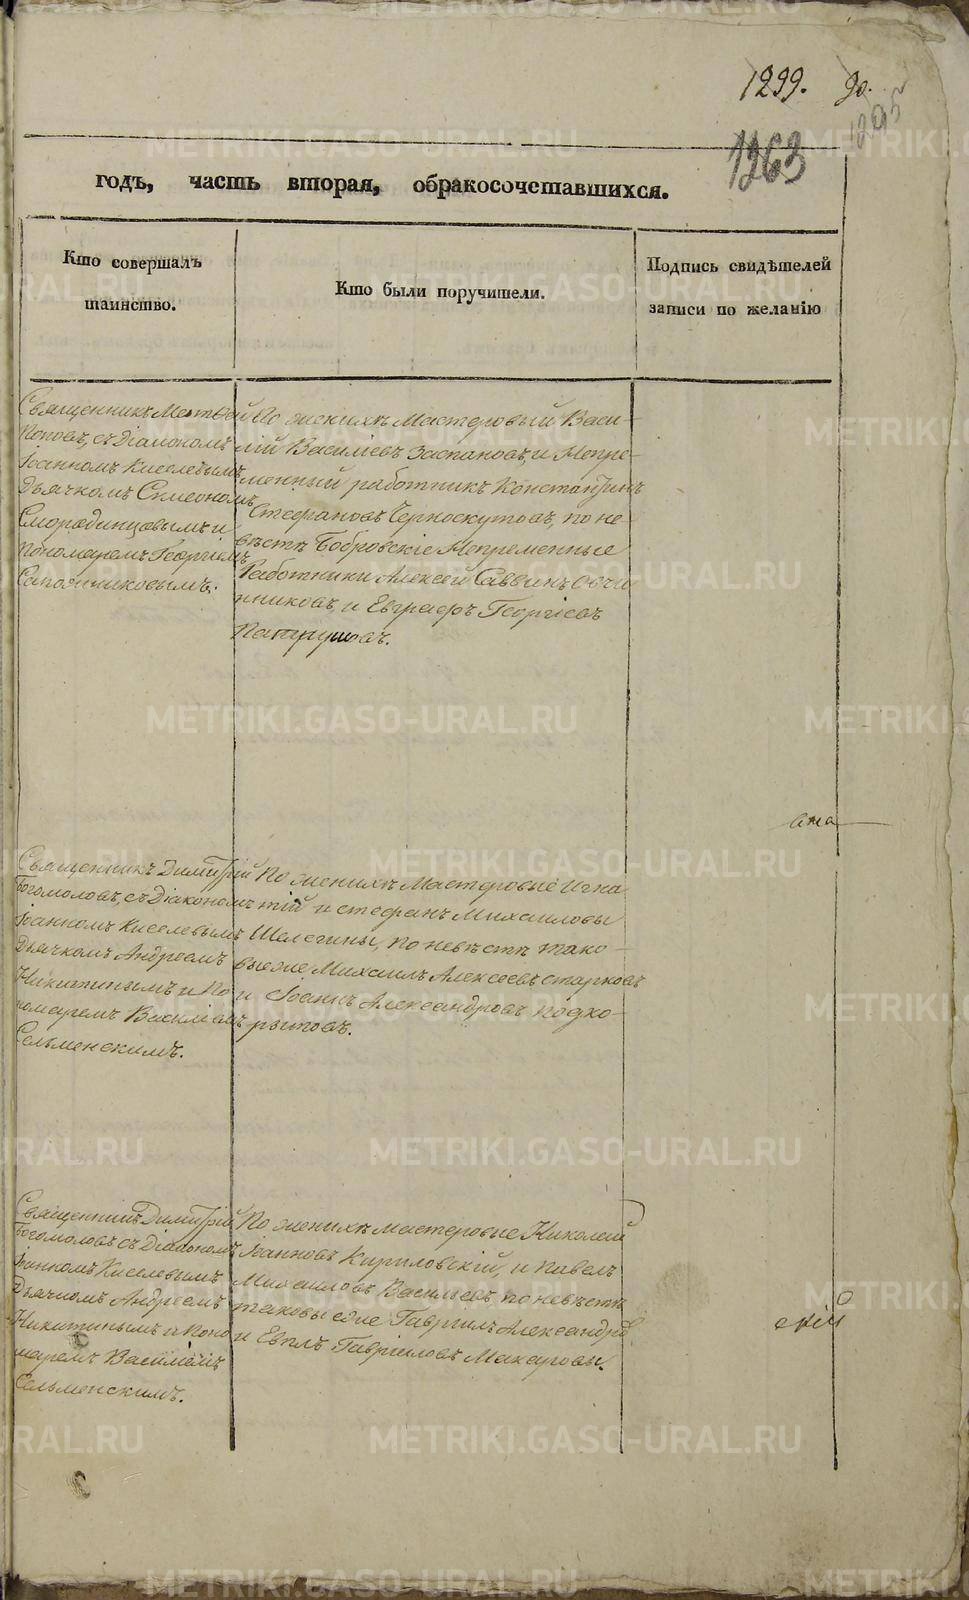 1299. 90.
1295
1263
годъ, часть вторая, обракосочетавшихся.
Кто совершалъ
таинство.
Кто были поручители.
Подпись свидѣтелей
записи по желанію
Священникъ Матѳей
Поповъ, съ Діакономъ
Іоанномъ Киселевымъ
Дьячкомъ Симеономъ
Смородинцовымъ и
пономаремъ Георгіемъ
Сапожниковымъ.
По женихѣ Мастеровый Васи-
лій Василіевъ Заспановъ, и Непре-
менный работникъ Константинъ
Стефановъ Черноскутовъ, по не-
вѣстѣ Бобровскіе Непременные
Работники Алексей Саввинъ Овчи
нниковъ, и Евграфъ Георгіевъ
Патрушовъ.
ана
Священникъ Димитрій
Богомоловъ, съ Діакономъ
Іоанномъ Киселевымъ
Дьячкомъ Андреемъ
Никитинымъ и По
номаремъ Василіемъ
Сельменскимъ.
По женихѣ Мастеровые Игна
тій и Стефанъ Михаиловы
Шелегины, по невѣстѣ тако-
выеже Михаилъ Алексеевъ Старковъ
и Іоаннъ Александровъ Подко-
рытовъ.
Священникъ Димитрій
Богомоловъ съ Діакономъ
Іоанномъ Киселевымъ
Дьячкомъ Андреемъ
Никитинымъ и Поно
маремъ Василіемъ
Сельменскимъ.
По женихѣ мастеровые Николай
Іоанновъ Кириловскій, и Павелъ
Михаиловъ Васильевъ, по невѣстѣ
таковы еже Гавріилъ Александровъ
и Евплъ Гавріиловъ Макаровы.
скій